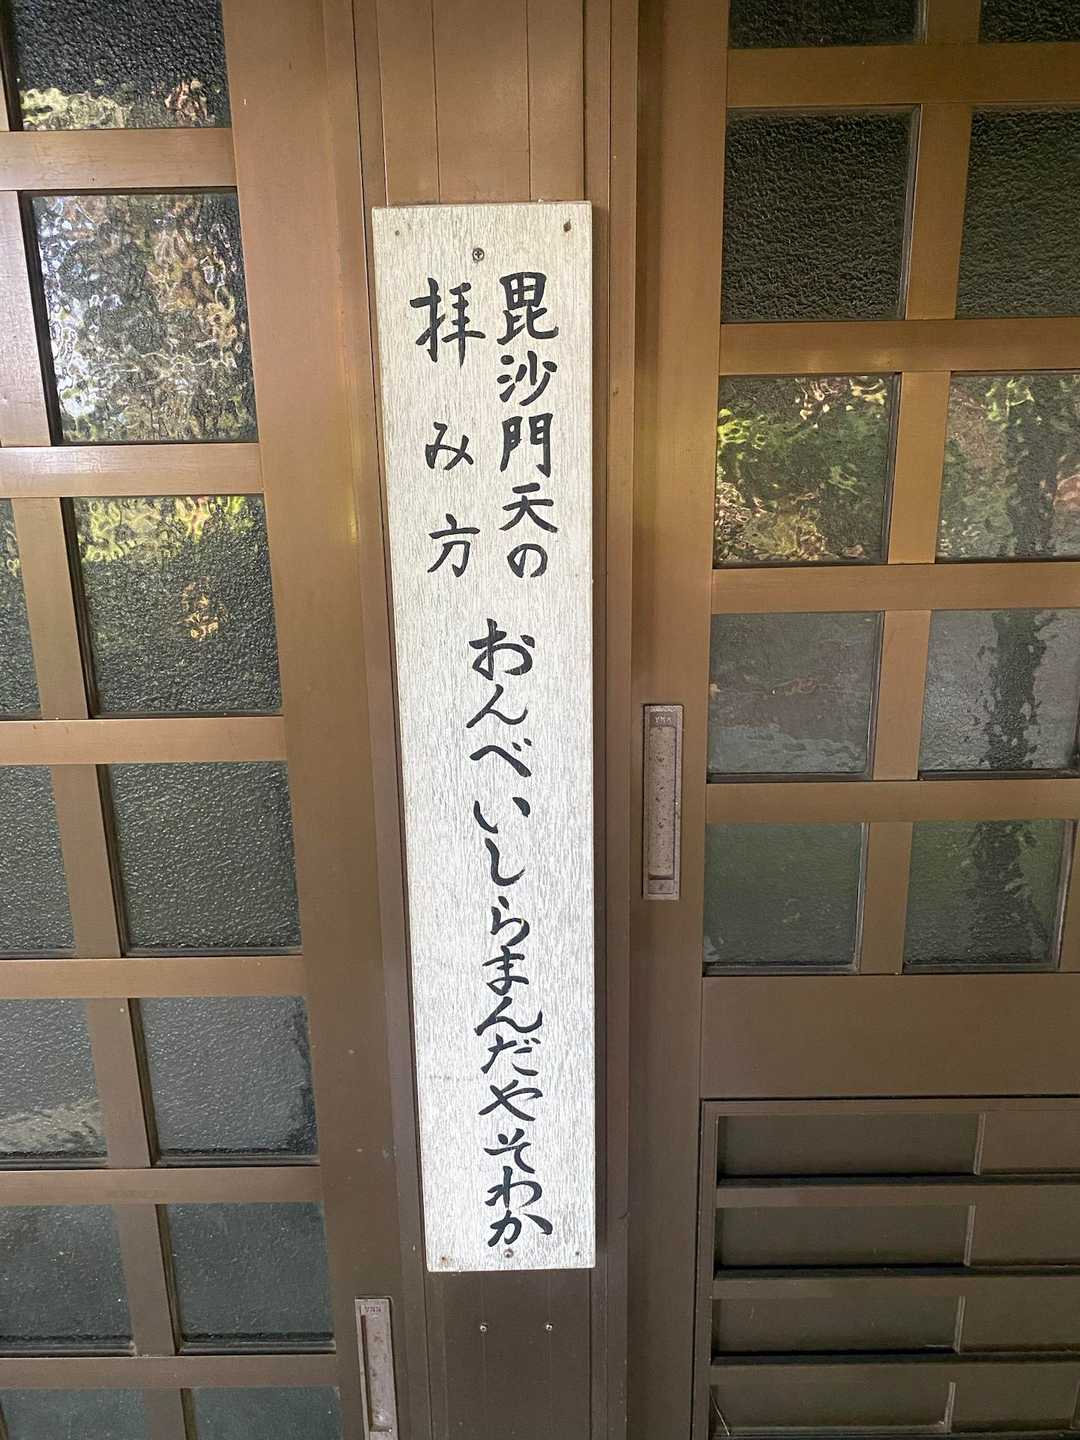 毘沙門天の
拝み方
おんべいしらまんだやそわか